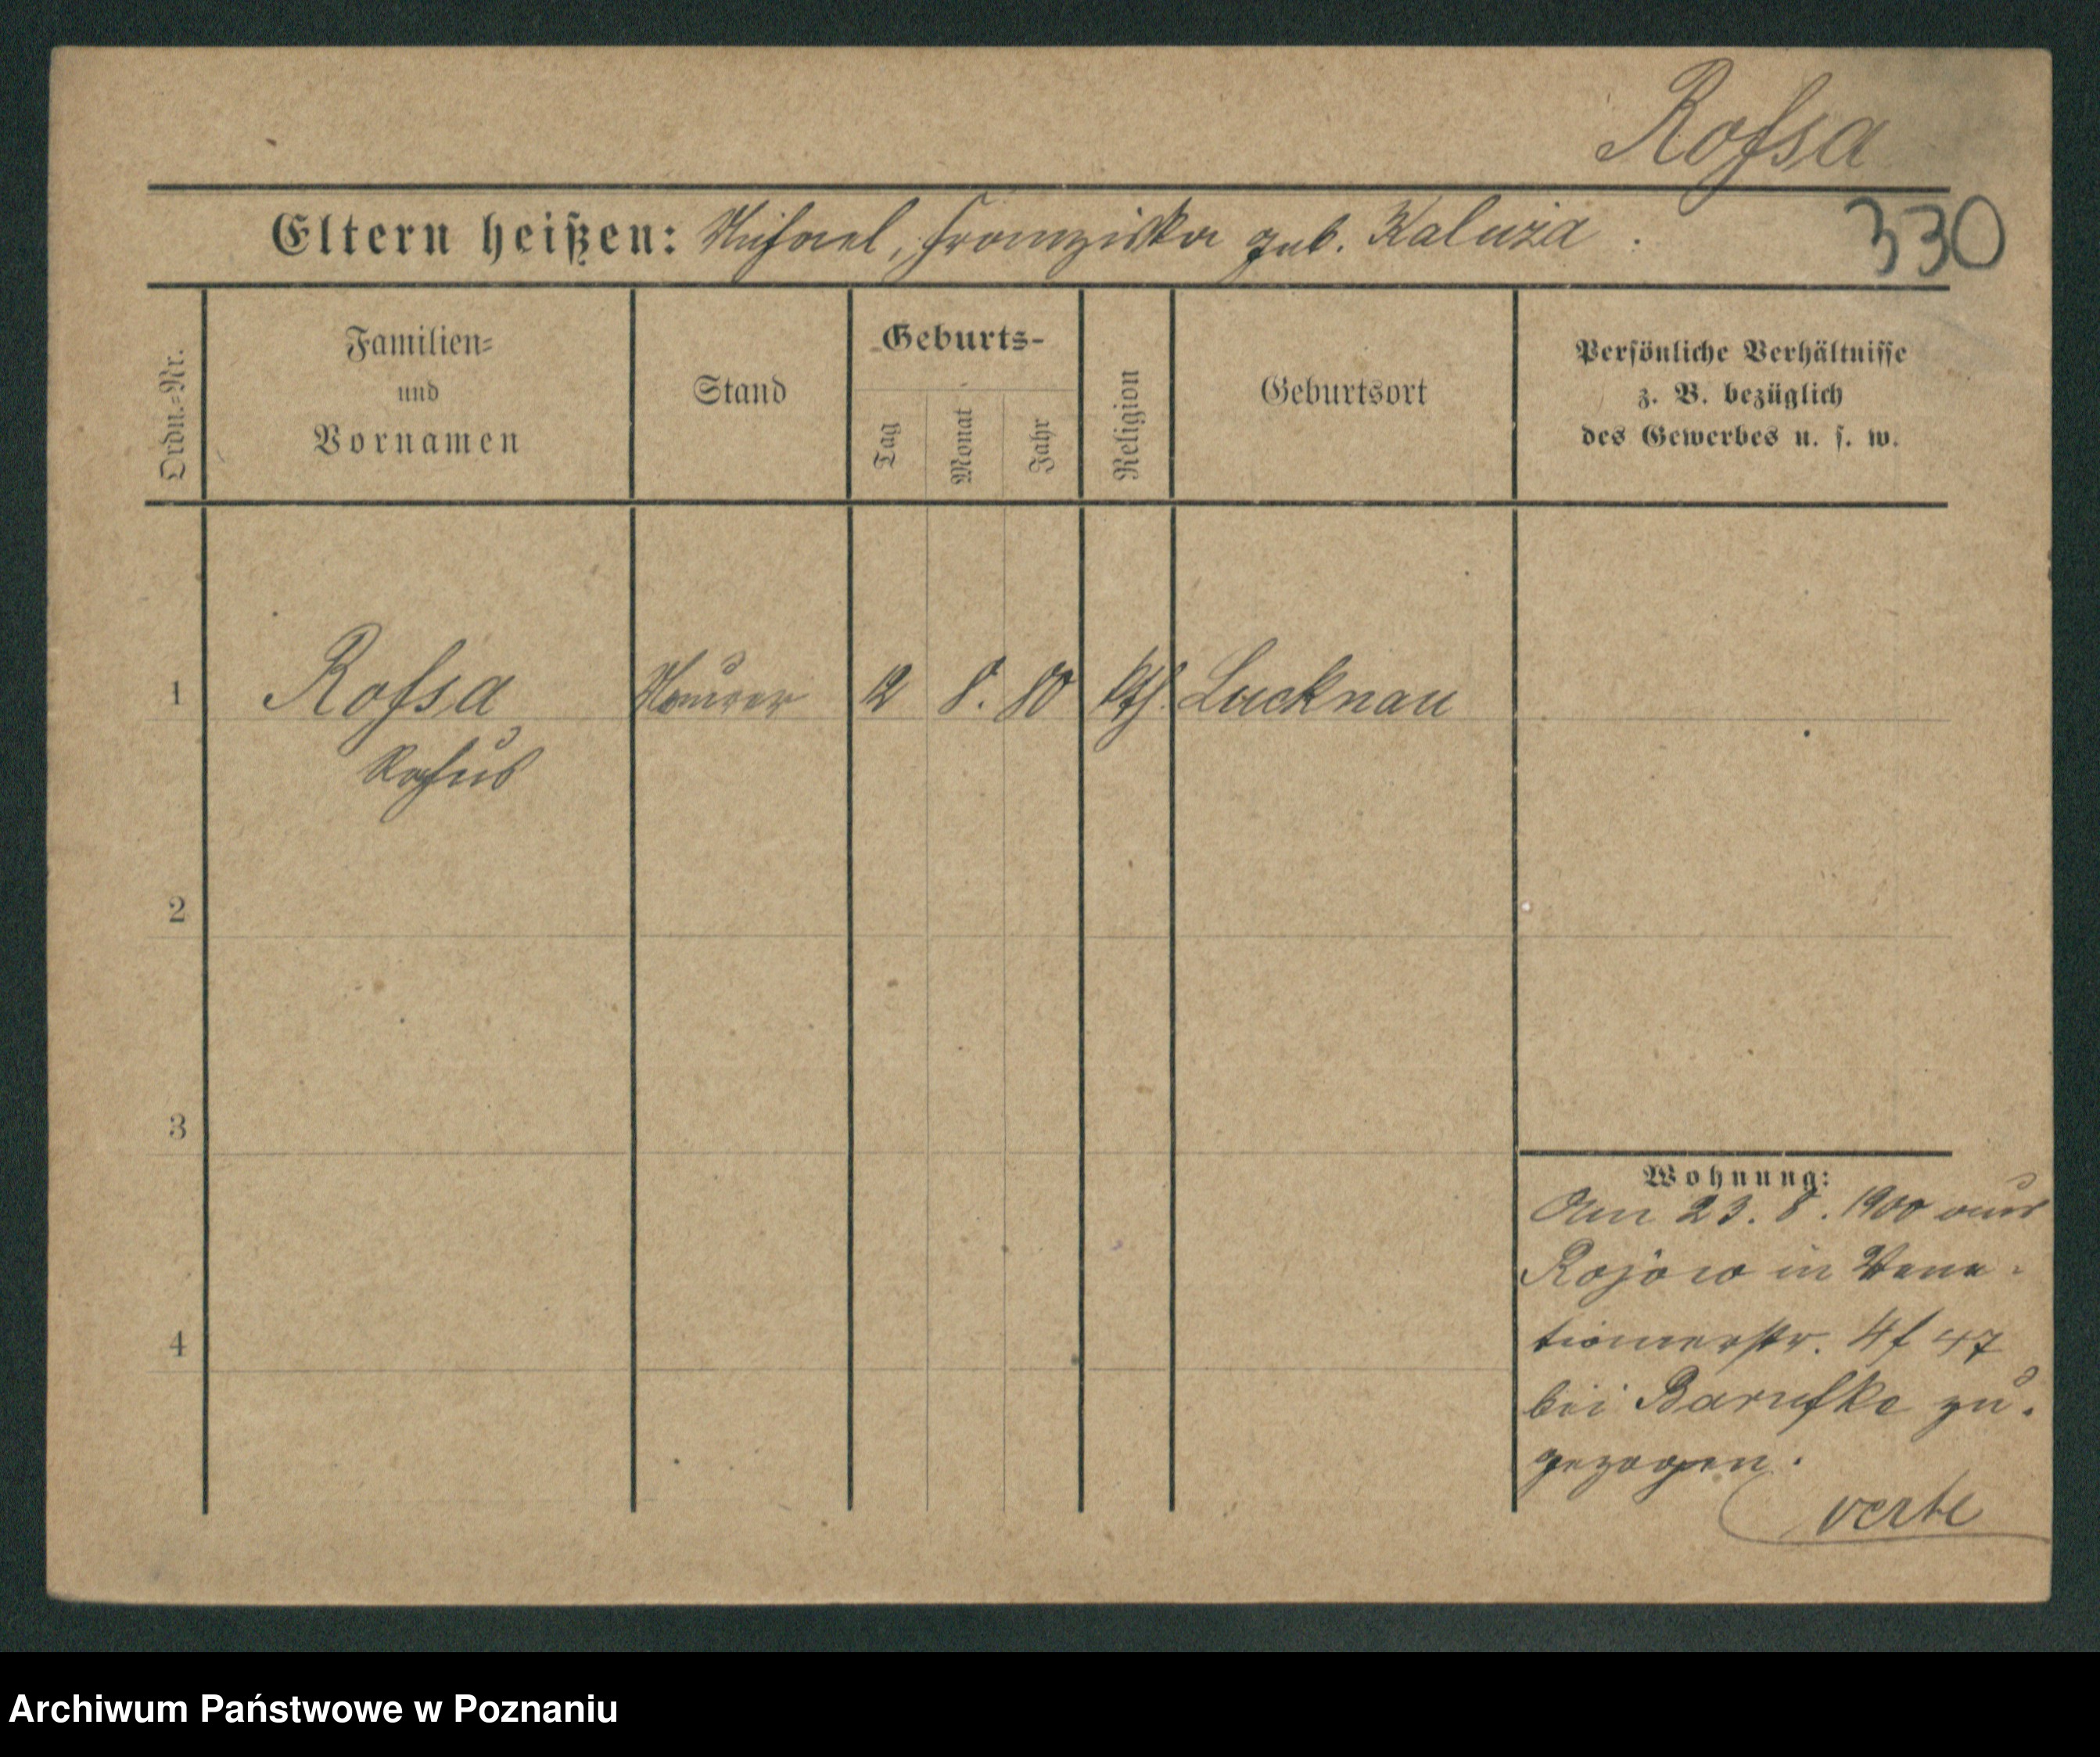 Roſsa
Eltern heißen: Michael, Franziska geb. Kaluza.
330
Ordn.=Nr.
Familien=
und
Vornamen
Stand
Geburts-
Tag
Monat
Jahr
Religion
Geburtsort
Persönliche Verhältnisse
z. B. bezüglich
des Gewerbes u. s. w.
1 Roſsa Maurer 12 8. 80 kth. Lucknau
2
3
4
Wohnung:
Am 23. 8. 1900 aus
Rojów in Vene-
tianerstr. 47
bei Barufke zu-
gezogen.
verte
Archiwum Państwowe w Poznaniu